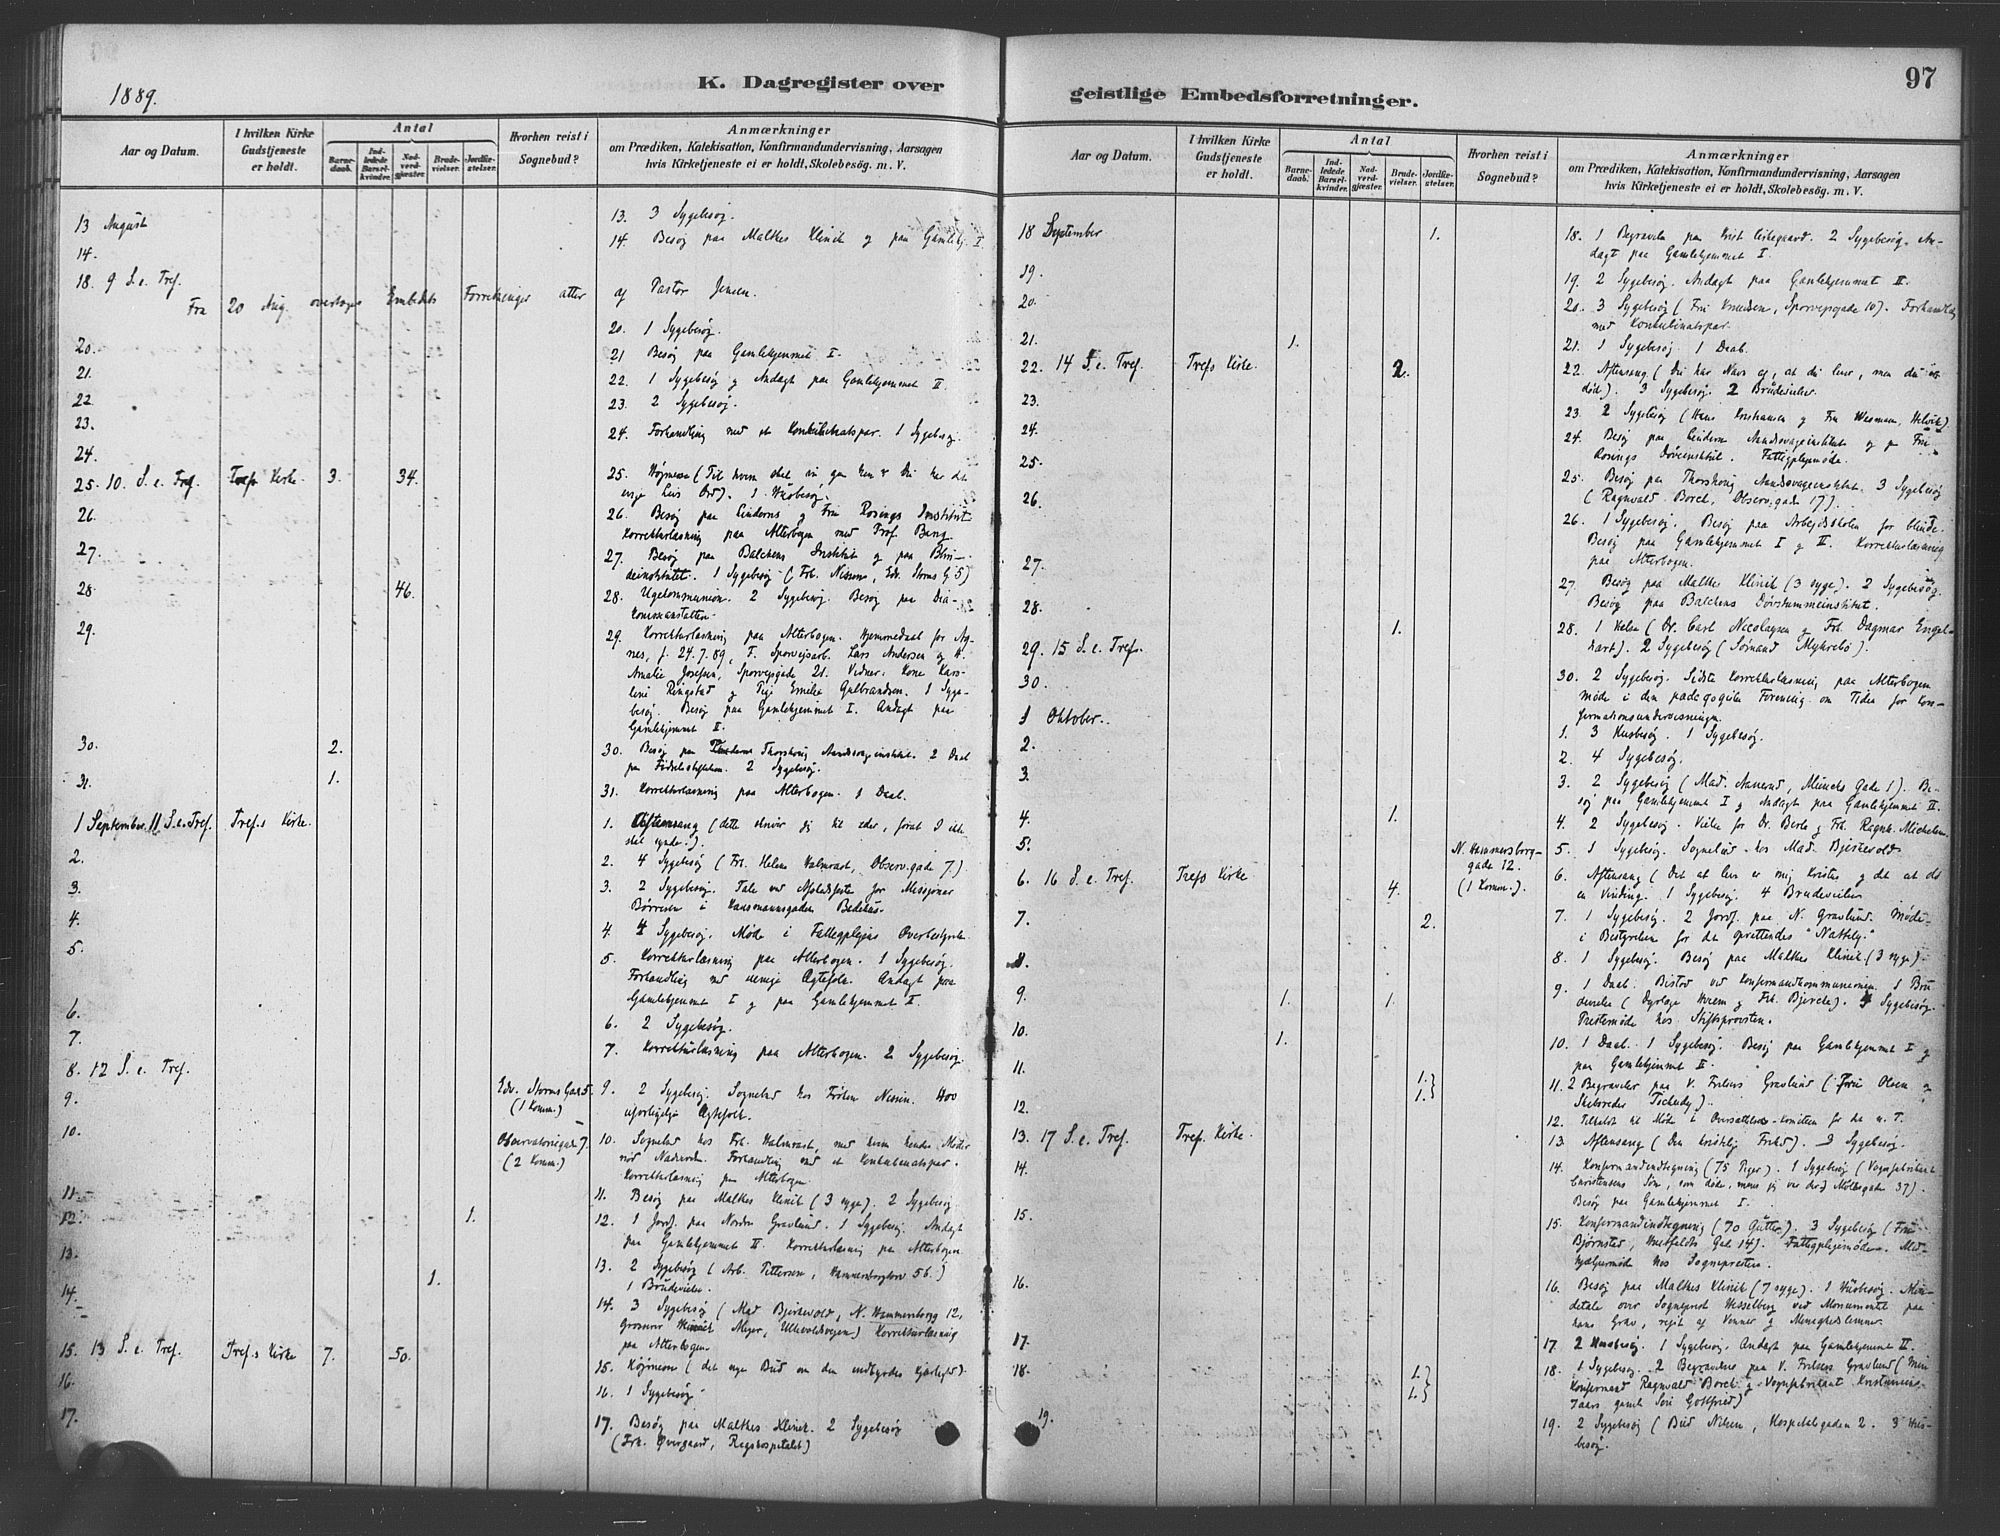 1889.
K. Dagregister over
Aar og Datum.
I hvilken Kirke Gudstjeneste er holdt.
Antal
Barnedaab.
Indledede Barselkvinder.
Nadverdgjæster.
Brudevielser.
Jordfæstelser.
Hvorhen reist i Sognebud?
Anmærkninger
om Prædiken, Katekisation, Konfirmandundervisning, Aarsagen
hvis Kirketjeneste ei er holdt, Skolebesøg. m. V.
13 August
13. 3 Sygebesøg.
14.
14. Besøg paa Malthes Klinik og paa Gamlehj. I
18. 9 S. e. Tref.
Fra 20 Aug. overtages Embedets Forretninger atter af Pastor Jensen.
20.
20. 1 Sygebesøg.
21.
21 Besøg paa Gamlehjemmet I.
22.
22. 1 Sygebesøg og Andagt paa Gamlehjemmet II.
23.
23. 2 Sygebesøg.
24.
24. Forhandling med et Konkubinatspar. 1 Sygebesøg.
25. 10. S. e. Tref. Tref. Kirke. 3. 34.
25. Højmesse (Til hvem skal vi gaa hen? Du har det
evige Livs Ord). 1 Husbesøg.
26.
26. Besøg paa Linderns og Fru Rosings Institut
Korrekturlæsning paa Alterbogen med Prof. Bang.
27.
27. Besøg paa Balchens Institut og paa Blin-
deinstitutet. 1 Sygebesøg (Frk. Nissen, Edv. Storms G 5)
28. 46.
28. Ugekommunion. 2 Sygebesøg. Besøg paa Dia-
konisanstalten.
29.
29. Korrekturlæsning paa Alterbogen. Hjemmedaab for Ag-
nes, f. 24.7.89, F. Sporvejsarb. Lars Andersen og H.
Amalie Josefsen, Sporvejsgade 21. Vidner: Kone Karo-
line Ringstad og Pige Emilie Gulbrandsen. 1 Syge-
besøg. Besøg paa Gamlehjemmet I. Andagt paa
Gamlehjemmet I.
30. 2.
30. Besøg paa Thorshaug Aandssvageinstitut. 2 Daab
paa Fødselsstiftelsen. 2 Sygebesøg.
31. 1.
31. Korrekturlæsning paa Alterbogen. 1 Daab.
1 September. 11 S. e. Tref. Tref.s Kirke.
1. Aftensang (dette skriver jeg til eder, forat I ikke
skal synde.).
2.
2. 4 Sygebesøg (Frk. Helene Halmrast, Observ.gade 7.)
3.
3. 2 Sygebesøg. Tale ved Afskedsfeste for Missionær
Børresen i Hausmannsgadens Bedehus.
4.
4. 4 Sygebesøg. Møde i Fattigplejens Overbestyrelse
5.
5. Korrekturlæsning paa Alterbogen. 1 Sygebesøg.
Forhandling med uenige Ægtefolk. Andagt paa
Gamlehjemmet I og paa Gamlehjemmet II.
6.
6. 2 Sygebesøg.
7.
7. Korrekturlæsning paa Alterbogen. 2 Sygebesøg.
8. 12 S. e. Tref.
9. Edv. Storms Gade 5. (1 Komm.)
9. 2 Sygebesøg. Sognebud hos Frøken Nissen. Hos
uforligelige Ægtefolk.
10. Observatoriegade 7. (2 Komm.)
10. Sognebud hos Frk. Halmrast, med hvem hendes Moder
nød Nadverden. Forhandling med et Konkubinatspar.
Korrekturlæsning paa Alterbogen.
11.
11. Besøg paa Malthes Klinik (3 syge). 2 Sygebesøg.
12. 1.
12. 1 Jordf. paa Nordre Gravlund. 1 Sygebesøg. Andagt
paa Gamlehjemmet II. Korrekturlæsning paa Alterbogen.
13.
13. 2 Sygebesøg (Arb. Pettersen, Hammersborgtorv 56.)
1 Brudevielse.
14. 1.
14. 3 Sygebesøg (Mad. Bjerkevold, N. Hammersborg 12,
Grosserer Meyer, Ullevoldsvejen) Korrekturlæsning
paa Alterbogen.
15. 13 S. e. Tref. Tref.s Kirke 7. 50.
15. Højmesse (det nye Bud om den indbyrdes Kjærlighed).
16.
16. 1 Sygebesøg.
17.
17. Besøg paa Malthes Klinik. 2 Sygebesøg
(Frk. Overgaard, Rigshospitalet)
97
geistlige Embedsforretninger.
Aar og Datum.
I hvilken Kirke Gudstjeneste er holdt.
Antal
Barnedaab.
Indledede Barselkvinder.
Nadverdgjæster.
Brudevielser.
Jordfæstelser.
Hvorhen reist i Sognebud?
Anmærkninger
om Prædiken, Katekisation, Konfirmandundervisning, Aarsagen
hvis Kirketjeneste ei er holdt, Skolebesøg. m. V.
18 September 1.
18. 1 Begravelse paa Krist Kirkegaard. 2 Sygebesøg. An-
dagt paa Gamlehjemmet I.
19.
19. 2 Sygebesøg. Andagt paa Gamlehjemmet II.
20.
20. 3 Sygebesøg (Fru Knudsen, Sporvejsgade 10). Forhandling
med Konkubinatspar.
21. 1.
21. 1 Sygebesøg. 1 Daab.
22. 14 S. e. Tref. Trefs Kirke. 2.
22. Aftensang (Du har Navn af, at du lever, men du er
død). 3 Sygebesøg. 2 Brudevielser.
23.
23. 2 Sygebesøg (Hans Kristiansen og Fru Wasmann, Helvik)
24.
24. Besøg paa Linderns Aandssvageinstitut og paa Fru
Rosings Døveinstitut. Fattigplejemøde.
25.
25. Besøg paa Thorshaug Aandssvageinstitut. 3 Sygebesøg
(Ragnvald Borch, Observ.gade 17).
26.
26. 1 Sygebesøg. Besøg paa Arbejdsskolen for blinde.
Besøg paa Gamlehjemmet I og II. Korrekturlæsning
paa Alterbogen.
27.
27. Besøg paa Malthes Klinik (3 syge). 2 Sygebesøg.
Besøg paa Balchens Døvstummeinstitut.
28. 1.
28. 1 Vielse (Dr. Carl Nicolaysen og Frk. Dagmar Engel-
hart). 2 Sygebesøg (Sømand Myhrebø).
29. 15 S. e. Trefs.
30.
30. 2 Sygebesøg. Sidste Korrekturlæsning paa Alterbogen
møde i den pædagogiske Forening om Tiden for kon-
firmationsundervisningen.
1 Oktober.
1. 3 Husbesøg. 1 Sygebesøg.
2.
2. 4 Sygebesøg.
3.
3. 2 Sygebesøg (Mad. Naverud, Munchs Gade 1). Be-
søg paa Gamlehjemmet I og Andagt paa Gamlehjemmet II.
4. 1.
4. 2 Sygebesøg. Vielse for Dr. Berle og Frk. Ragnh. Michelsen
5. N. Hammersborg-gade 12. (1 Komm.).
5. 1 Sygebesøg. Sognebud hos Mad. Bjerkevold
6. 16 S. e. Tref. Trefs Kirke 4.
6. Aftensang (Det at leve er mig Kristus og det at dø
en Vinding. 1 Sygebesøg. 4 Brudevielser
7. 2.
7. 1 Sygebesøg. 2 Jordf. paa N. Gravlund. Møde
i Bestyrelsen for det oprettendes "Nattely."
8.
8. 1 Sygebesøg. Besøg paa Malthes Klinik (3 syge).
9. 1. 1.
9. 1 Daab. Bistod ved Konfirmandkommunionen. 1 Bru-
devielse (Dyrlæge Hvem og Frk. Bjercke). 4 Sygebesøg.
Prestemøde hos Stiftsprovsten.
10. 1.
10. 1 Daab. 1 Sygebesøg. Besøg paa Gamlehjemmet I og
paa Gamlehjemmet II.
11. 1. 1.}
11. 2 Begravelser paa V. Frelsers Gravlund (Frue Olsen og
Skibsreder Tschudy).
12.
12. Tilkaldt til Møde i Oversættelses-Komiteen for det n. T.
13. 17 S. e. Tref. Tref. Kirke.
13. Aftensang (Den kristelig Frihed). 3 Sygebesøg.
14.
14. Konfirmandindtegning (75 Piger). 1 Sygebesøg (Vognfabrikant
Christensens Søn, som døde, mens jeg var der, Møllergade 37).
Besøg paa Gamlehjemmet I.
15.
15. Konfirmandindtegning (70 Gutter). 3 Sygebesøg (Fru
Bjørnstad, Huitfeldts Gade 14). Fattigplejemøde. Med-
hjælpermøde hos Sognepresten.
16.
16. Besøg paa Malthes Klinik (7 syge). 1 Husbesøg. Min-
detale over Sogneprest Hesselberg ved Monumentet paa
hans Grav, rejst af Venner og Menighedslemmer.
17.
17. 2 Husbesøg. 1 Sygebesøg. Andagt paa Gamlehjemmet II.
18. 1. 1.}
18. 1 Sygebesøg. 2 Begravelser paa V. Frelsers Gravlund (Min
Konfirmand Ragnvald Borch og Vognfabrikant Kristensens
7 aars gamle Søn Gottfred)
19.
19. 2 Sygebesøg (Bud Nilsen, Hospitalsgaden 2. 3 Hus-
besøg.